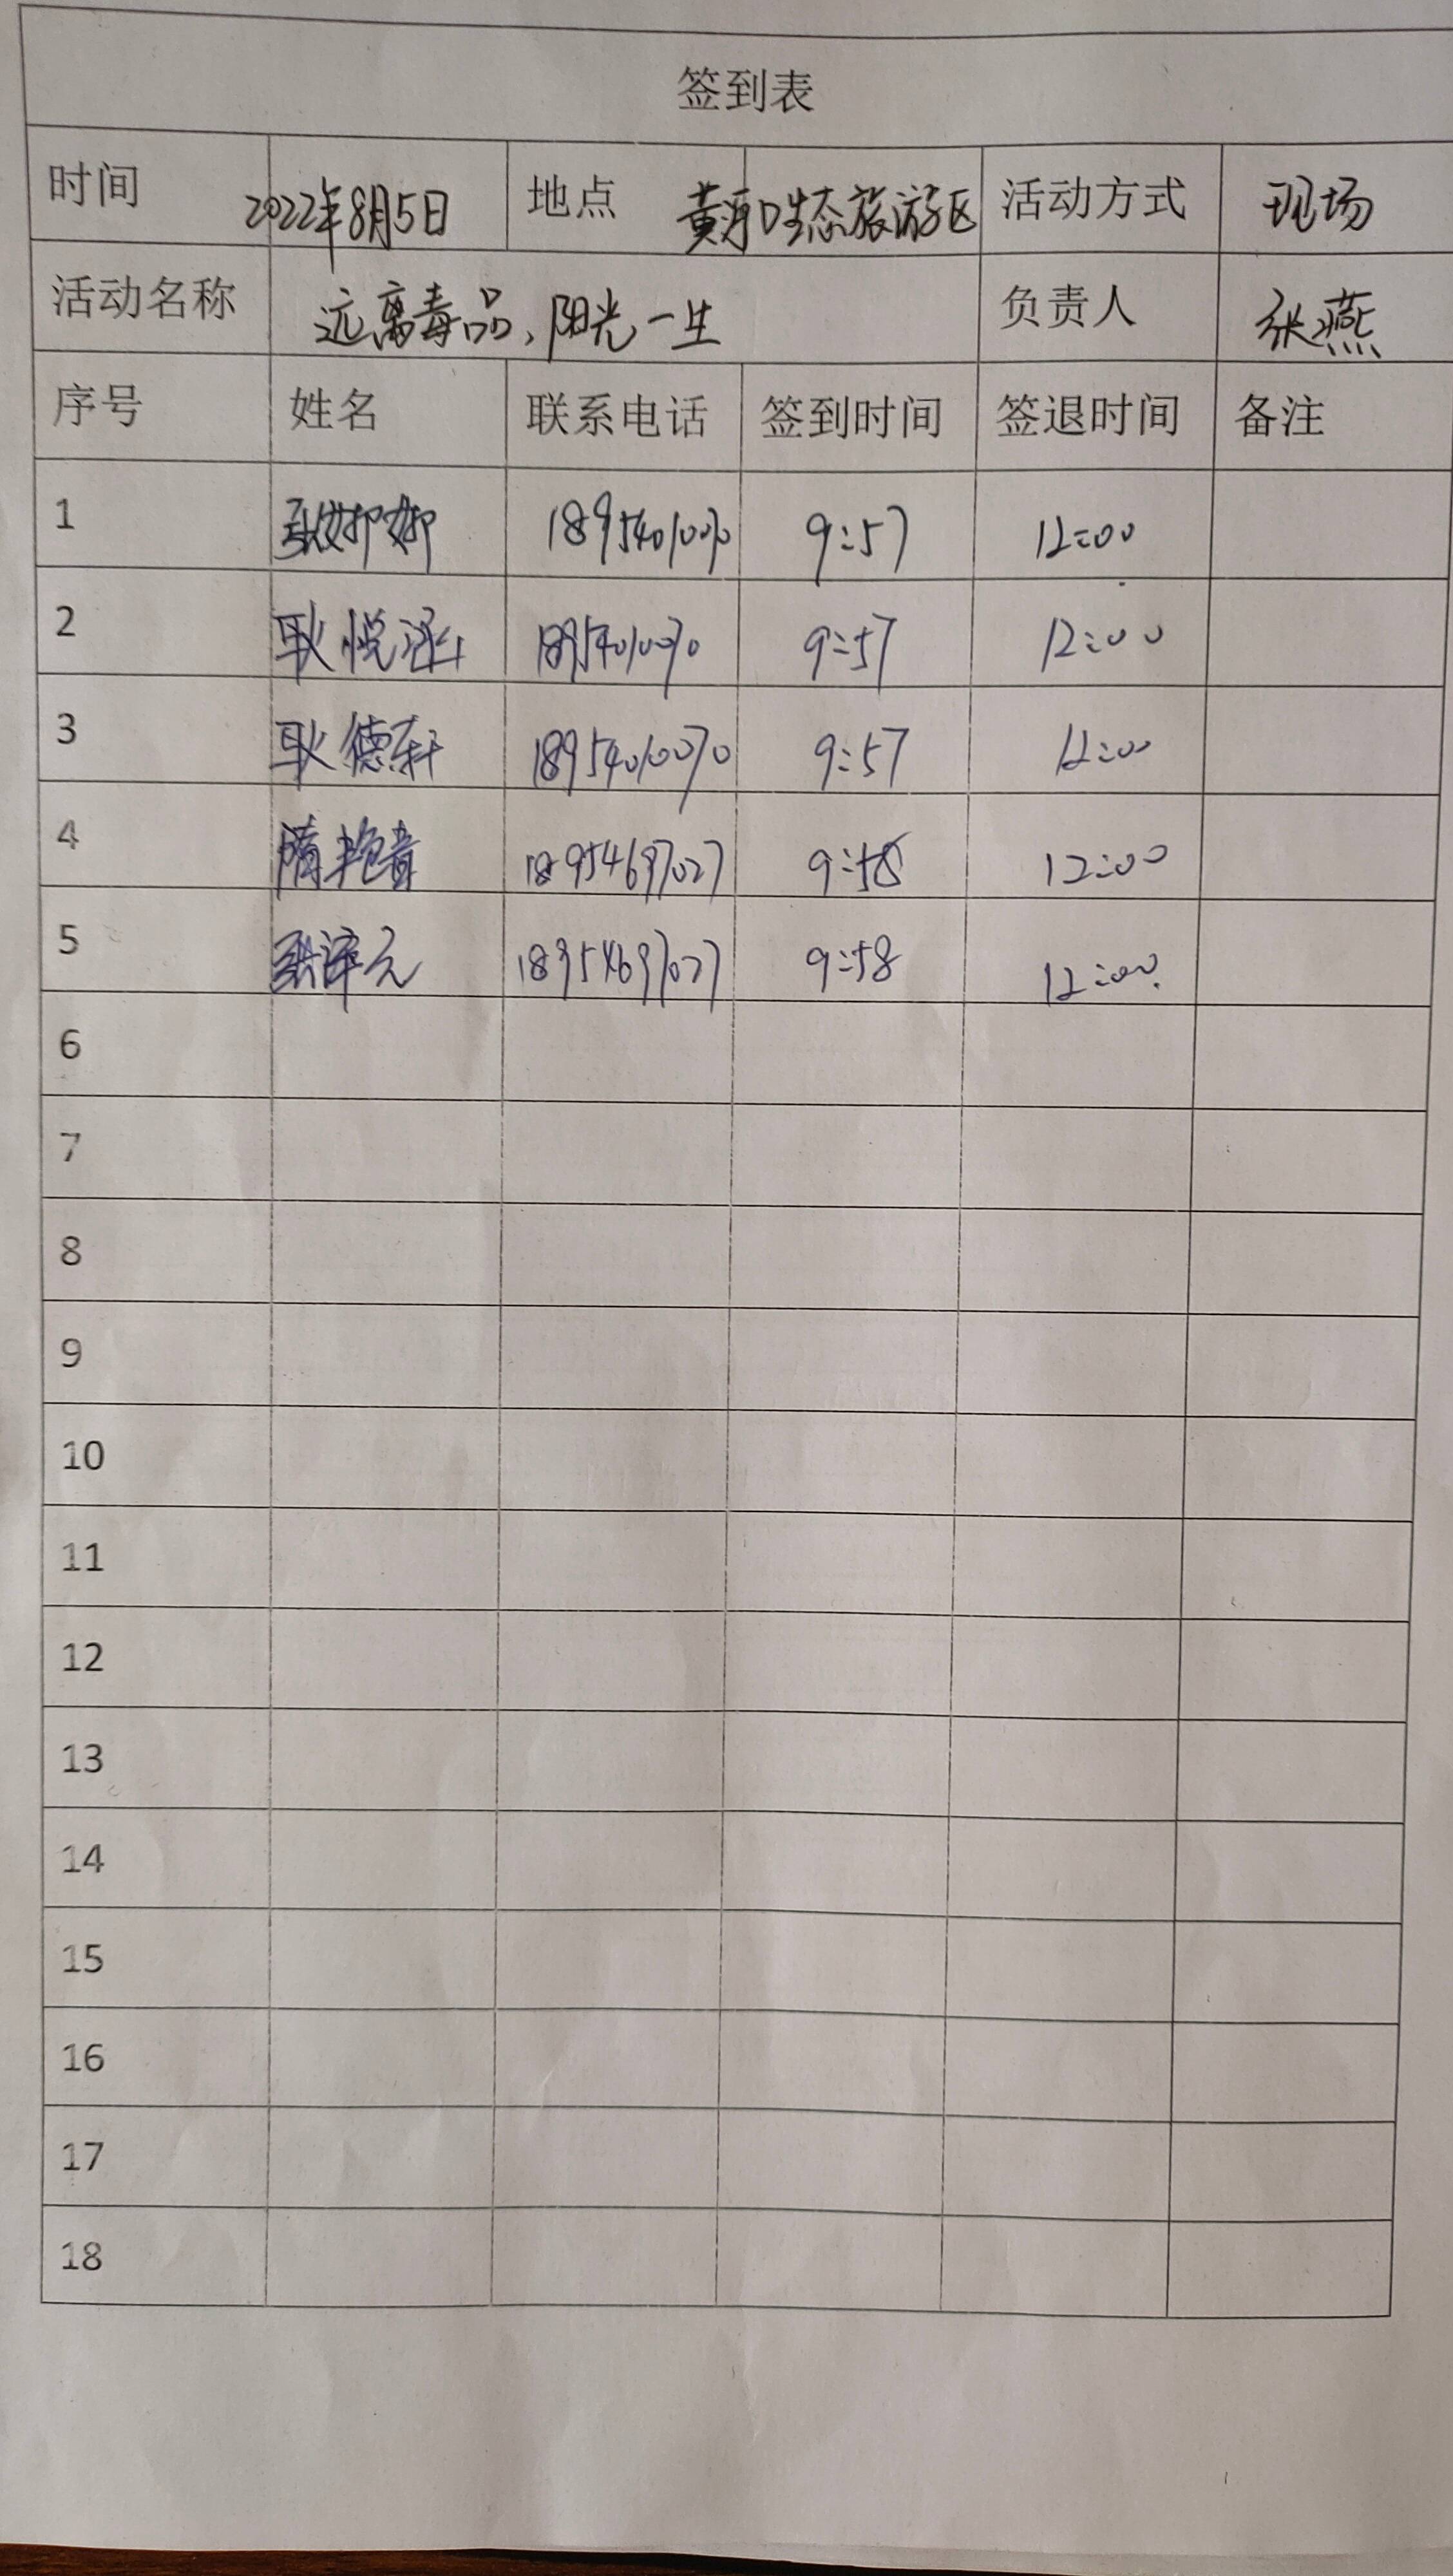 签到表
时间 2022年8月5日 地点 黄河口生态旅游区 活动方式 现场
活动名称 远离毒品,阳光一生 负责人 张燕
序号 姓名 联系电话 签到时间 签退时间 备注
1 9:57 12:00
2 耿悦涵 18954010070 9:57 12:00
3 耿德轩 18954010070 9:57 12:00
4 隋艳青 18954697027 9:58 12:00
5 18954697027 9:58 12:00
6
7
8
9
10
11
12
13
14
15
16
17
18